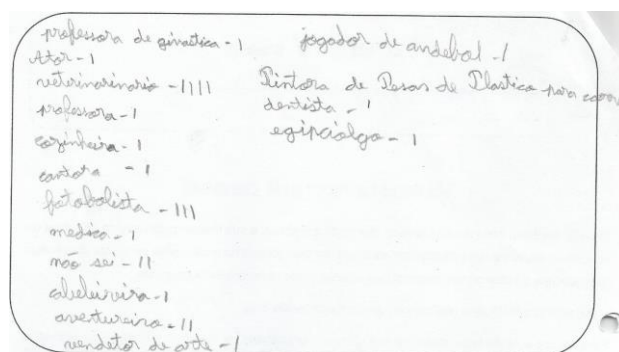 professora de ginastica - 1
Ator - 1
veterinarinario - 1111
professora - 1
cozinheira - 1
cantora - 1
fotobolista - 111
medica - 1
não sei - 11
cabeleireira - 1
aventureiro - 11
vendetor de arte - 1
jogador de andebol - 1
Pintora de Pesas de Plastico para
dentista - 1
egipciolga - 1